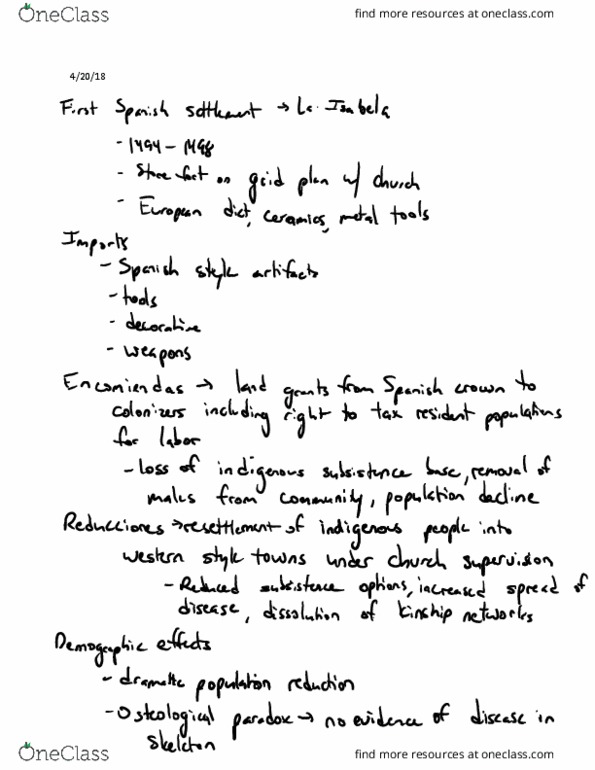 OneClass
find more resources at oneclass.com
4/20/18
First Spanish settlement → La Isabela
- 1494 - 1498
- Stone fort on grid plan w/ church
- European diet, ceramics, metal tools
Imports
- Spanish style artifacts
- tools
- decorative
- weapons
Encomiendas → land grants from Spanish crown to
colonizers including right to tax resident populations
for labor
- loss of indigenous subsistence base, removal of
males from community, population decline
Reducciones → resettlement of indigenous people into
western style towns under church supervision
- Reduced subsistence options, increased spread of
disease, dissolution of kinship networks
Demographic effects
- dramatic population reduction
- Osteological paradox → no evidence of disease in
skeleton
OneClass
find more resources at oneclass.com